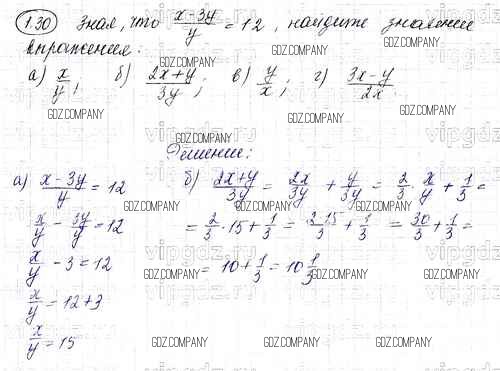 1.30 Зная, что (x-3y)/y = 12, найдите значение
выражения:
а) x/y; б) (2x+y)/3y; в) y/x; г) (3x-y)/2x.
Решение:
а) (x-3y)/y = 12
x/y - 3y/y = 12
x/y - 3 = 12
x/y = 12+3
x/y = 15
б) (2x+y)/3y = 2x/3y + y/3y = 2/3 · x/y + 1/3 =
= 2/3 · 15 + 1/3 = 2·15/3 + 1/3 = 30/3 + 1/3 =
= 10 + 1/3 = 10 1/3
GDZ.COMPANY
vipgdz.ru